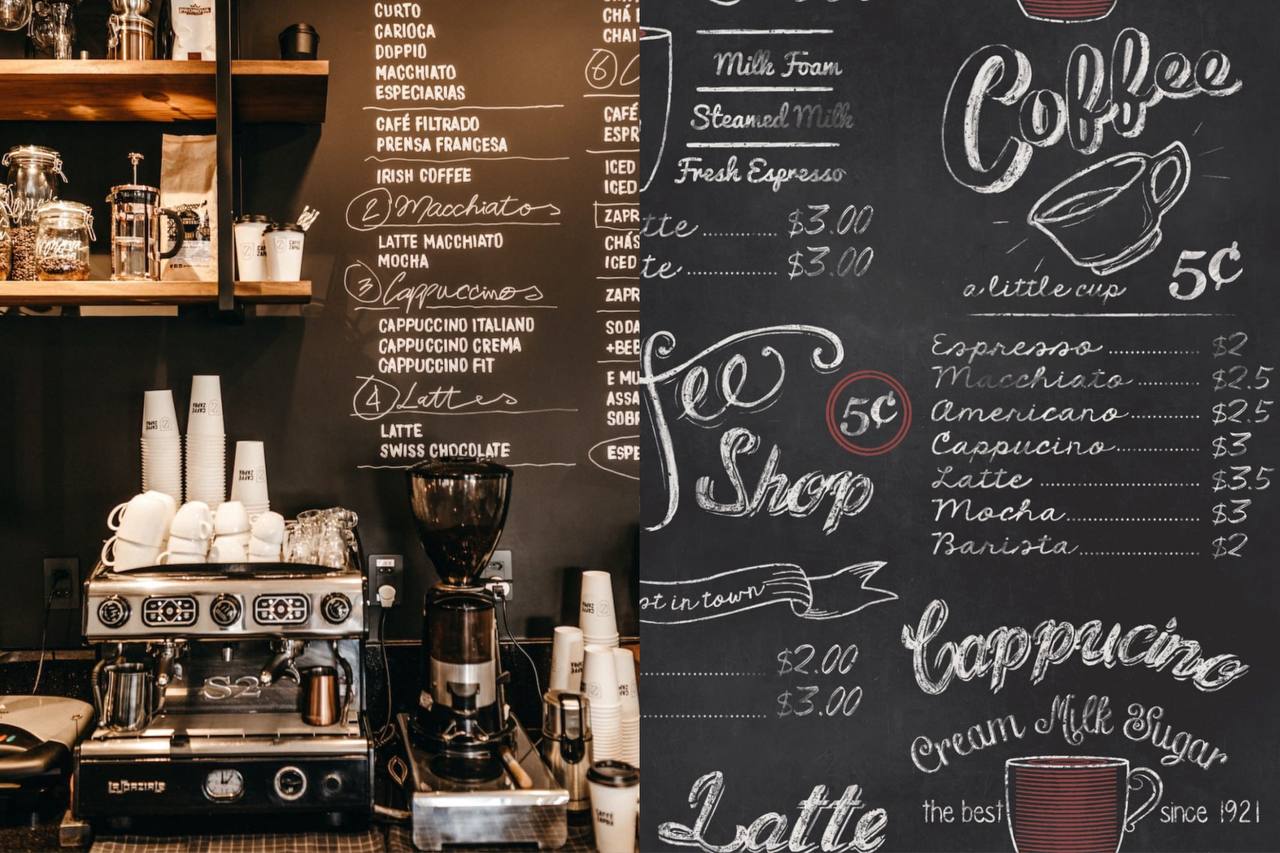 CURTO
CARIOCA
DOPPIO
MACCHIATO
ESPECIARIAS
CAFÉ FILTRADO
PRENSA FRANCESA
IRISH COFFEE
2 Macchiatos
LATTE MACCHIATO
MOCHA
3 Cappuccinos
CAPPUCCINO ITALIANO
CAPPUCCINO CREMA
CAPPUCCINO FIT
4 Lattes
LATTE
SWISS CHOCOLATE
CHÁ
CHAI
6
CAFÉ
ESPR
ICED
ICED
ZAPR
CHÁS
ICED
ZAPR
SODA
+BEB
E MU
ASSA
SOBR
ESPE
S2
La Spaziale
Milk Foam
Steamed Milk
Fresh Espresso
tte $3.00
te $3.00
fee
Shop
5¢
st in town
$2.00
$3.00
Latte
Coffee
a little cup
5¢
Espresso $2
Macchiato $2.5
Americano $2.5
Cappucino $3
Latte $3.5
Mocha $3
Barista $2
Cappucino
Cream Milk Sugar
the best since 1921